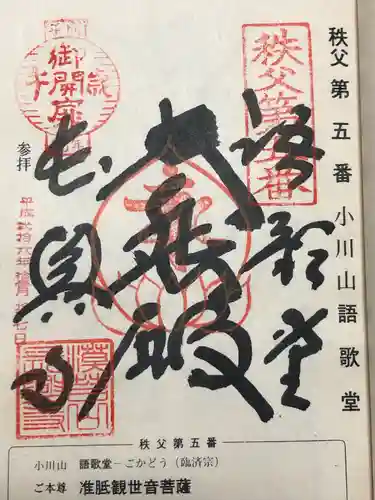 秩父第五番 小川山語歌堂
秩父第五番
御開扉
午歳
参拝
平成
語歌堂
大悲殿
長興寺
秩父第五番
小川山 語歌堂－ごかどう（臨済宗）
ご本尊 准胝観世音菩薩